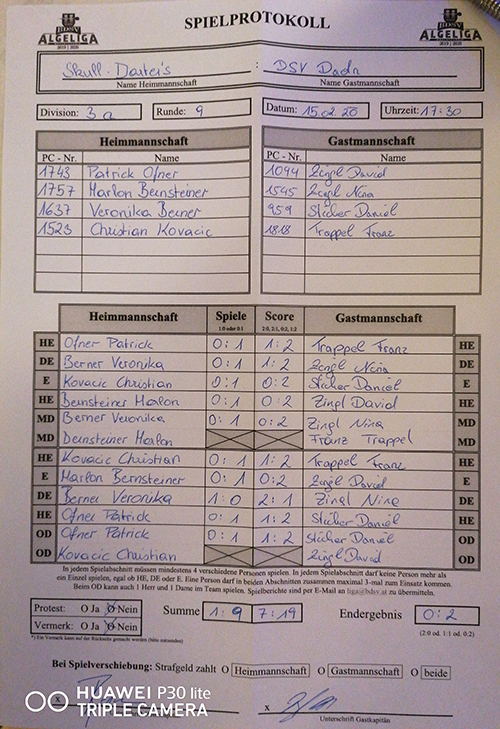 BDSV ALGELIGA 2019 | 2020
SPIELPROTOKOLL
BDSV ALGELIGA 2019 | 2020
Skull-Darter's : DSV Dadn
Name Heimmannschaft Name Gastmannschaft
Division: 3a Runde: 9 Datum: 15.02.20 Uhrzeit: 17:30
Heimmannschaft Gastmannschaft
PC - Nr. Name PC - Nr. Name
1743 Patrick Ofner 1094 Zingl David
1757 Marlon Bernsteiner 1545 Zingl Nina
1637 Veronika Berner 959 Sticher Daniel
1523 Christian Kovacic 1818 Trappel Franz
Heimmannschaft Spiele Score Gastmannschaft
1:0 oder 0:1 2:0, 2:1, 0:2, 1:2
HE Ofner Patrick 0:1 1:2 Trappel Franz HE
DE Berner Veronika 0:1 1:2 Zingl Nina DE
E Kovacic Christian 0:1 0:2 Sticher Daniel E
HE Bernsteiner Marlon 0:1 0:2 Zingl David HE
MD Berner Veronika 0:1 0:2 Zingl Nina MD
MD Bernsteiner Marlon Franz Trappel MD
HE Kovacic Christian 0:1 1:2 Trappel Franz HE
E Marlon Bernsteiner 0:1 0:2 Zingl David E
DE Berner Veronika 1:0 2:1 Zingl Nina DE
HE Ofner Patrick 0:1 1:2 Sticher Daniel HE
OD Ofner Patrick 0:1 1:2 Sticher Daniel OD
OD Kovacic Christian Zingl David OD
In jedem Spielabschnitt müssen mindestens 4 verschiedene Personen spielen. In jedem Spielabschnitt darf keine Person mehr als
ein Einzel spielen, egal ob HE, DE oder E. Eine Person darf in beiden Abschnitten zusammen maximal 3-mal zum Einsatz kommen.
Beim OD kann auch 1 Herr und 1 Dame im Team spielen. Spielberichte sind per E-Mail an liga@bdsv.at zu übermitteln.
Protest: O Ja O Nein Summe 1:9 7:19 Endergebnis 0:2
Vermerk: O Ja O Nein (2:0 od. 1:1 od. 0:2)
Bei Spielverschiebung: Strafgeld zahlt O Heimmannschaft O Gastmannschaft O beide
HUAWEI P30 lite
TRIPLE CAMERA
x x
Unterschrift Gastkapitän